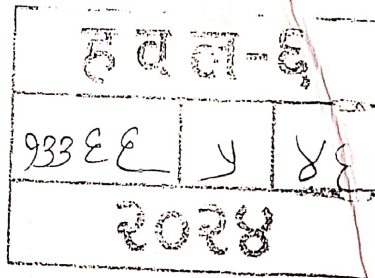 ह व ल-६
१३३६६ ५ ४६
२०२४